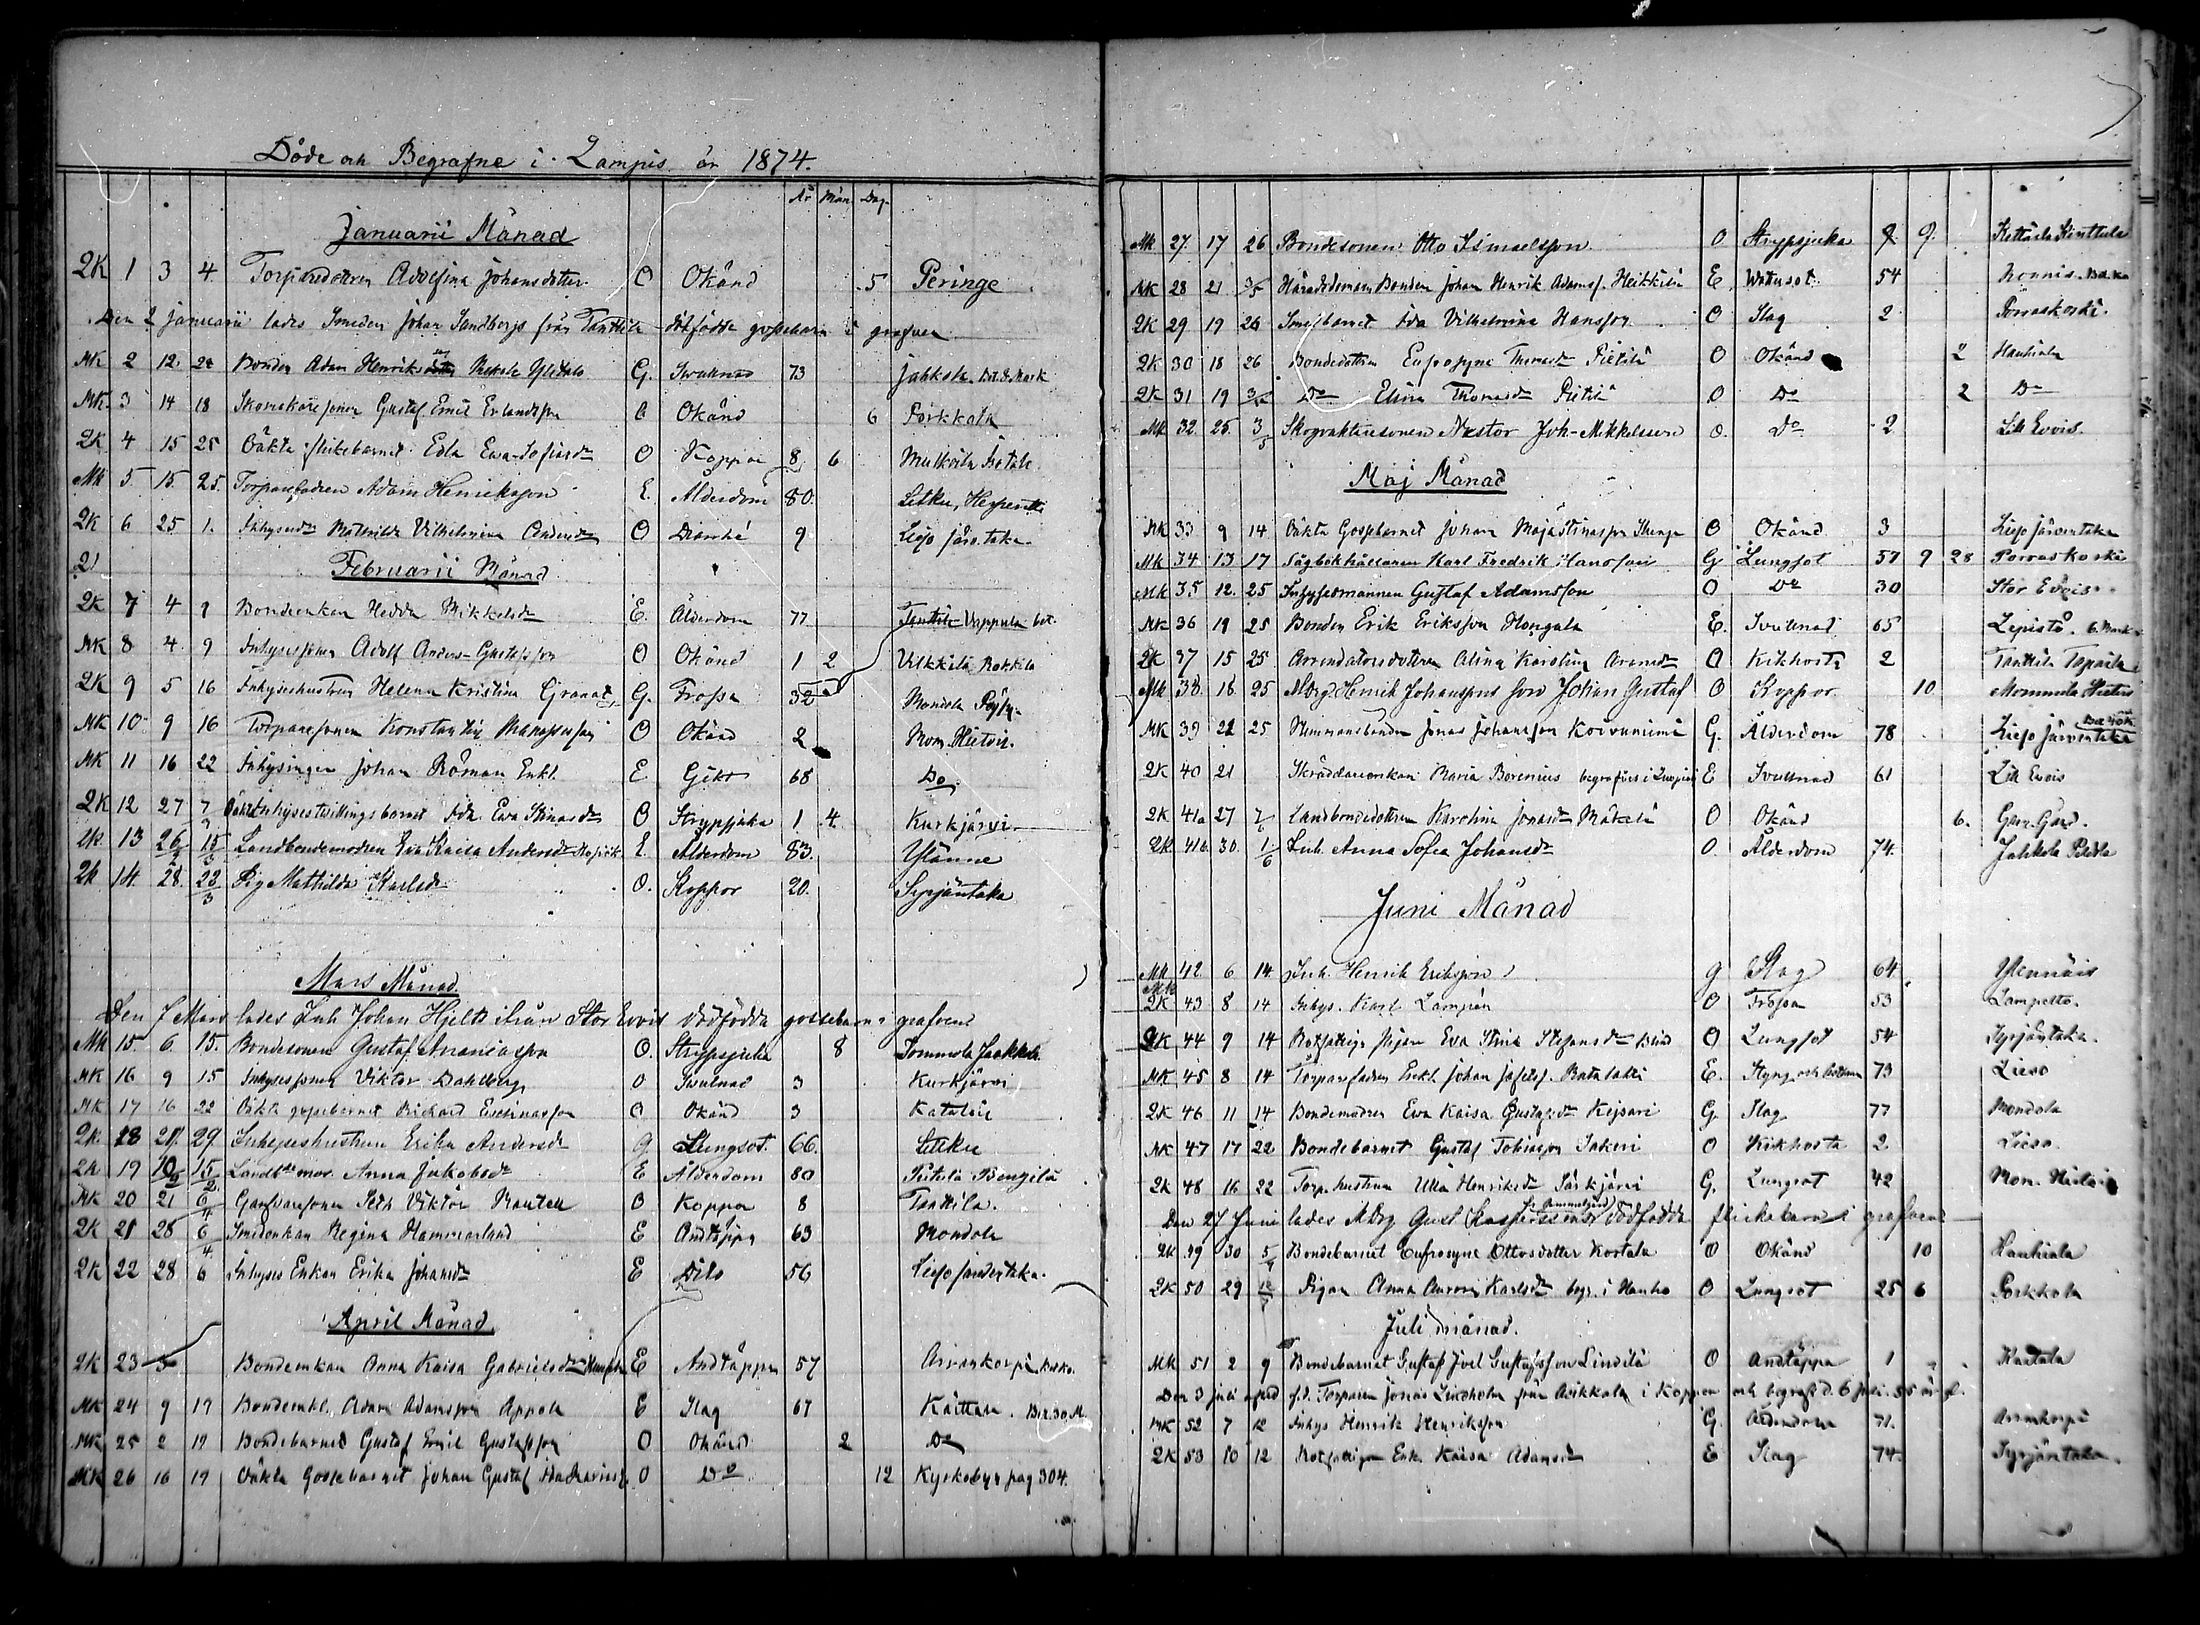 Döde och Begrafne i Lampis år 1874.
År Mån Dag
Januarii Månad
QK 1 3 4 Torparedottren Adolfina Johansdotter O Okänd 5 Peringe
Den 2 januarii lades Smeden Johan Sandbergs från Tanttila dödfödda gossebarn i grafven
MK 2 12 24 Bonden Adam Henriksson G. Swullnad 73 Jahkola
MK 3 14 18 Skomakaresonen Gustaf Emil Erlandsson O Okänd 6 Porkkola
QK 4 15 25 Oäkta flickebarnet Edla Ewa Sofiasdr O Koppor 8 6
MK 5 15 25. Torparefadren Adam Henriksson E. Ålderdom 80. Letku,
QK 6 25 1. Inhysesdr Mathilda Vilhelmina Andersdr O Diarrhé 9 Lieso Järventaka
Februarii Månad
QK 7 4 9 Bondeenkan Hedda Mikkelsdr E. Ålderdom 77 Tanttila Vappula
MK 8 4 9 Inhysessonen Adolf Anders Gustafsson O Okänd 1 2 Vilkkilä
QK 9 5 16 Inhyseshustrun Helena Kristina Granat G. Frossa 32 Mondola
MK 10 9 16 Torparesonen Konstantin O Okänd 2 Mom. Hietois.
MK 11 16 22 Inhysingen Johan Roman Enkl. E. Gikt 68 Do
QK 12 27 7 Oäkta Inhysestvillingsbarnet Ida Ewa Stinasdr O Strypsjuka 1 4. Kurkjärvi
QK 13 26/2 15/3 Landbondemodren Eva Kaisa Andersdr E. Ålderdom 83. Ylänne
QK 14. 28. 22/3 Pig Mathilda Karlsdr O. Koppor 20. Syrjäntaka
Mars Månad
Den 7 Mars lades Inh Johan Hjelts ifrån Stor Evois dödfödda gossebarn i grafven
MK 15. 6. 15. Bondesonen Gustaf Ananiasson O. Strypsjuka 8 Tommola Jaakkola
MK 16 9 15 Inhysessonen Viktor Dahlberg O Svulnad 3 Kurkjärvi
MK 17 16 22 Oäkta gossebarnet Rickard O Okänd 3 Kataloe
QK 18 21. 29 Inhyseshustrun Erika Andersdr G Lungsot. 66. Letku
QK 19 10 15 Landbmor. Anna Jakobsdr E Ålderdom 80 Pietilä Bengilä
MK 20 21 6/4 Garfvaresonen Seth Viktor Rautell O Koppor 8 Tanttila.
QK 21 28 6/4 Smedenkan Regina Hammarlund E Andtäppa 63 Mondola
QK 22 28 6 Inhyses Enkan Erika Johansdr E Dito 56 Lieso Järventaka.
April Månad
QK 23 3 Bondeenkan Anna Kaisa Gabrielsdr E Andtäppa 57 Arrankorpi
MK 24 9 19 Bondeenkl. Adam Adamsson Appola E Slag 67 Kaittara
MK 25 2 19 Bondebarnet Gustaf Emil Gustafsson O Okänd 2 Do
MK 26 16 19 Oäkta Gossebarnet Johan Gustaf O Do 12 Kyrkobyn pag 304.
MK 27. 17 26 Bondesonen Otto Ismaelsson O Strypsjuka 9.
MK 28 21 3/5 Häradsdomaren Bonden Johan Henrik Adamss. Heikkilä E Watersot 54
QK 29 19 26 Smedbarnet Ida Vilhelmina Hansson O Slag 2 Porraskoski.
QK 30 18 26 Bondedottren Eufrosyne Thomasdr Pietilä O Okänd 2 Hauhiala
QK 31 19 Do Elina Thomasdr Pietilä O Do 2 Do
MK 32. 25. 3/5 Skogvaktaresonen Nestor Joh. Mikkelsson O. Do 2 Lill Evois.
Maj Månad
MK 33 9 14 Oäkta Gossebarnet Johan Maja Stinasson O Okänd 3 Lieso Järventaka
MK 34 13 17 Sågbokhållaren Karl Fredrik Hansson G Lungsot 57 9 28 Porraskoski
MK 35 12. 25 Inhysesmannen Gustaf Adamsson O Do 30 Stor Evois
MK 36 19 25 Bonden Erik Eriksson Hongala E. Svullnad 65 Lepistö.
QK 37 15 25 Arrendatorsdottren Alina Karolina O Kikhosta 2 Tanttila
MK 38. 16. 25 Henrik Johanssons son Johan Gustaf O Koppor 10
MK 39 22 25 Nimmansbonden Jonas Johansson Koivuniemi G. Ålderdom 78 Lieso Järventaka
QK 40 21 Skräddarenkan Maria Borenius begrafves i Kuopio E Svullnad 61 Lill Evois
QK 41a 27 7/6 Landbondedottren Karolina Jonasdr Mäkelä O Okänd 6.
QK 41b. 30. 1/6 Inh. Anna Sofia Johansdr O. Ålderdom 74. Jahkola
Juni Månad
MK 42 6 14. Inh. Henrik Eriksson G Slag 64 Ylennäis
MK QK 43 8 14 Inhys. Karl Lampén O Frossa 53 Lampisto.
QK 44 9 14 Rotfattiga pigan Eva Stina Stefansdr blind O Lungsot 54 Syrjäntaka.
MK 45 8 14 Torparefadren Enkl. Johan Josefss. Ratalahti E. Styng och 73 Lieso
QK 46 11 14 Bondemodren Ewa Kaisa Gustafsdr Keisari G. Slag 77 Mondola
MK 47 17 22 Bondebarnet Gustaf Tobiasson Sakeri O Kikhosta 2 Lieso.
QK 48 16 22 Torp. hustrun Ulla Henriksdr Särkjärvi G. Lungsot 42 Mom.
Den 27 Juni lades Gust Kasperssons dödfödda flickebarn i grafven
QK 49 30 5/7 Bondebarnet Eufrosyne Ottosdotter Kortela O Okänd 10 Hauhiala
QK 50 29 12/7 Pigan Anna Aurora Karlsdr begr. i Hauho O Lungsot 25 6 Porkkola
Juli månad.
MK 51 2 9 Bondebarnet Gustaf Joel Gustafsson Lindilä O Andtäppa 1
Den 3 juli afled f.d. Torparen Jonas Lindholm från Asikkala i Koppor och begrofs d. 6 juli. 55 år g.
MK 52 7 12 Inhys Henrik Henriksson G. Ålderdom 71. Arrankorpi
QK 53 10 12 Rotfattiga Enk. Kaisa Adamsdr E Slag 74. Syrjäntaka.